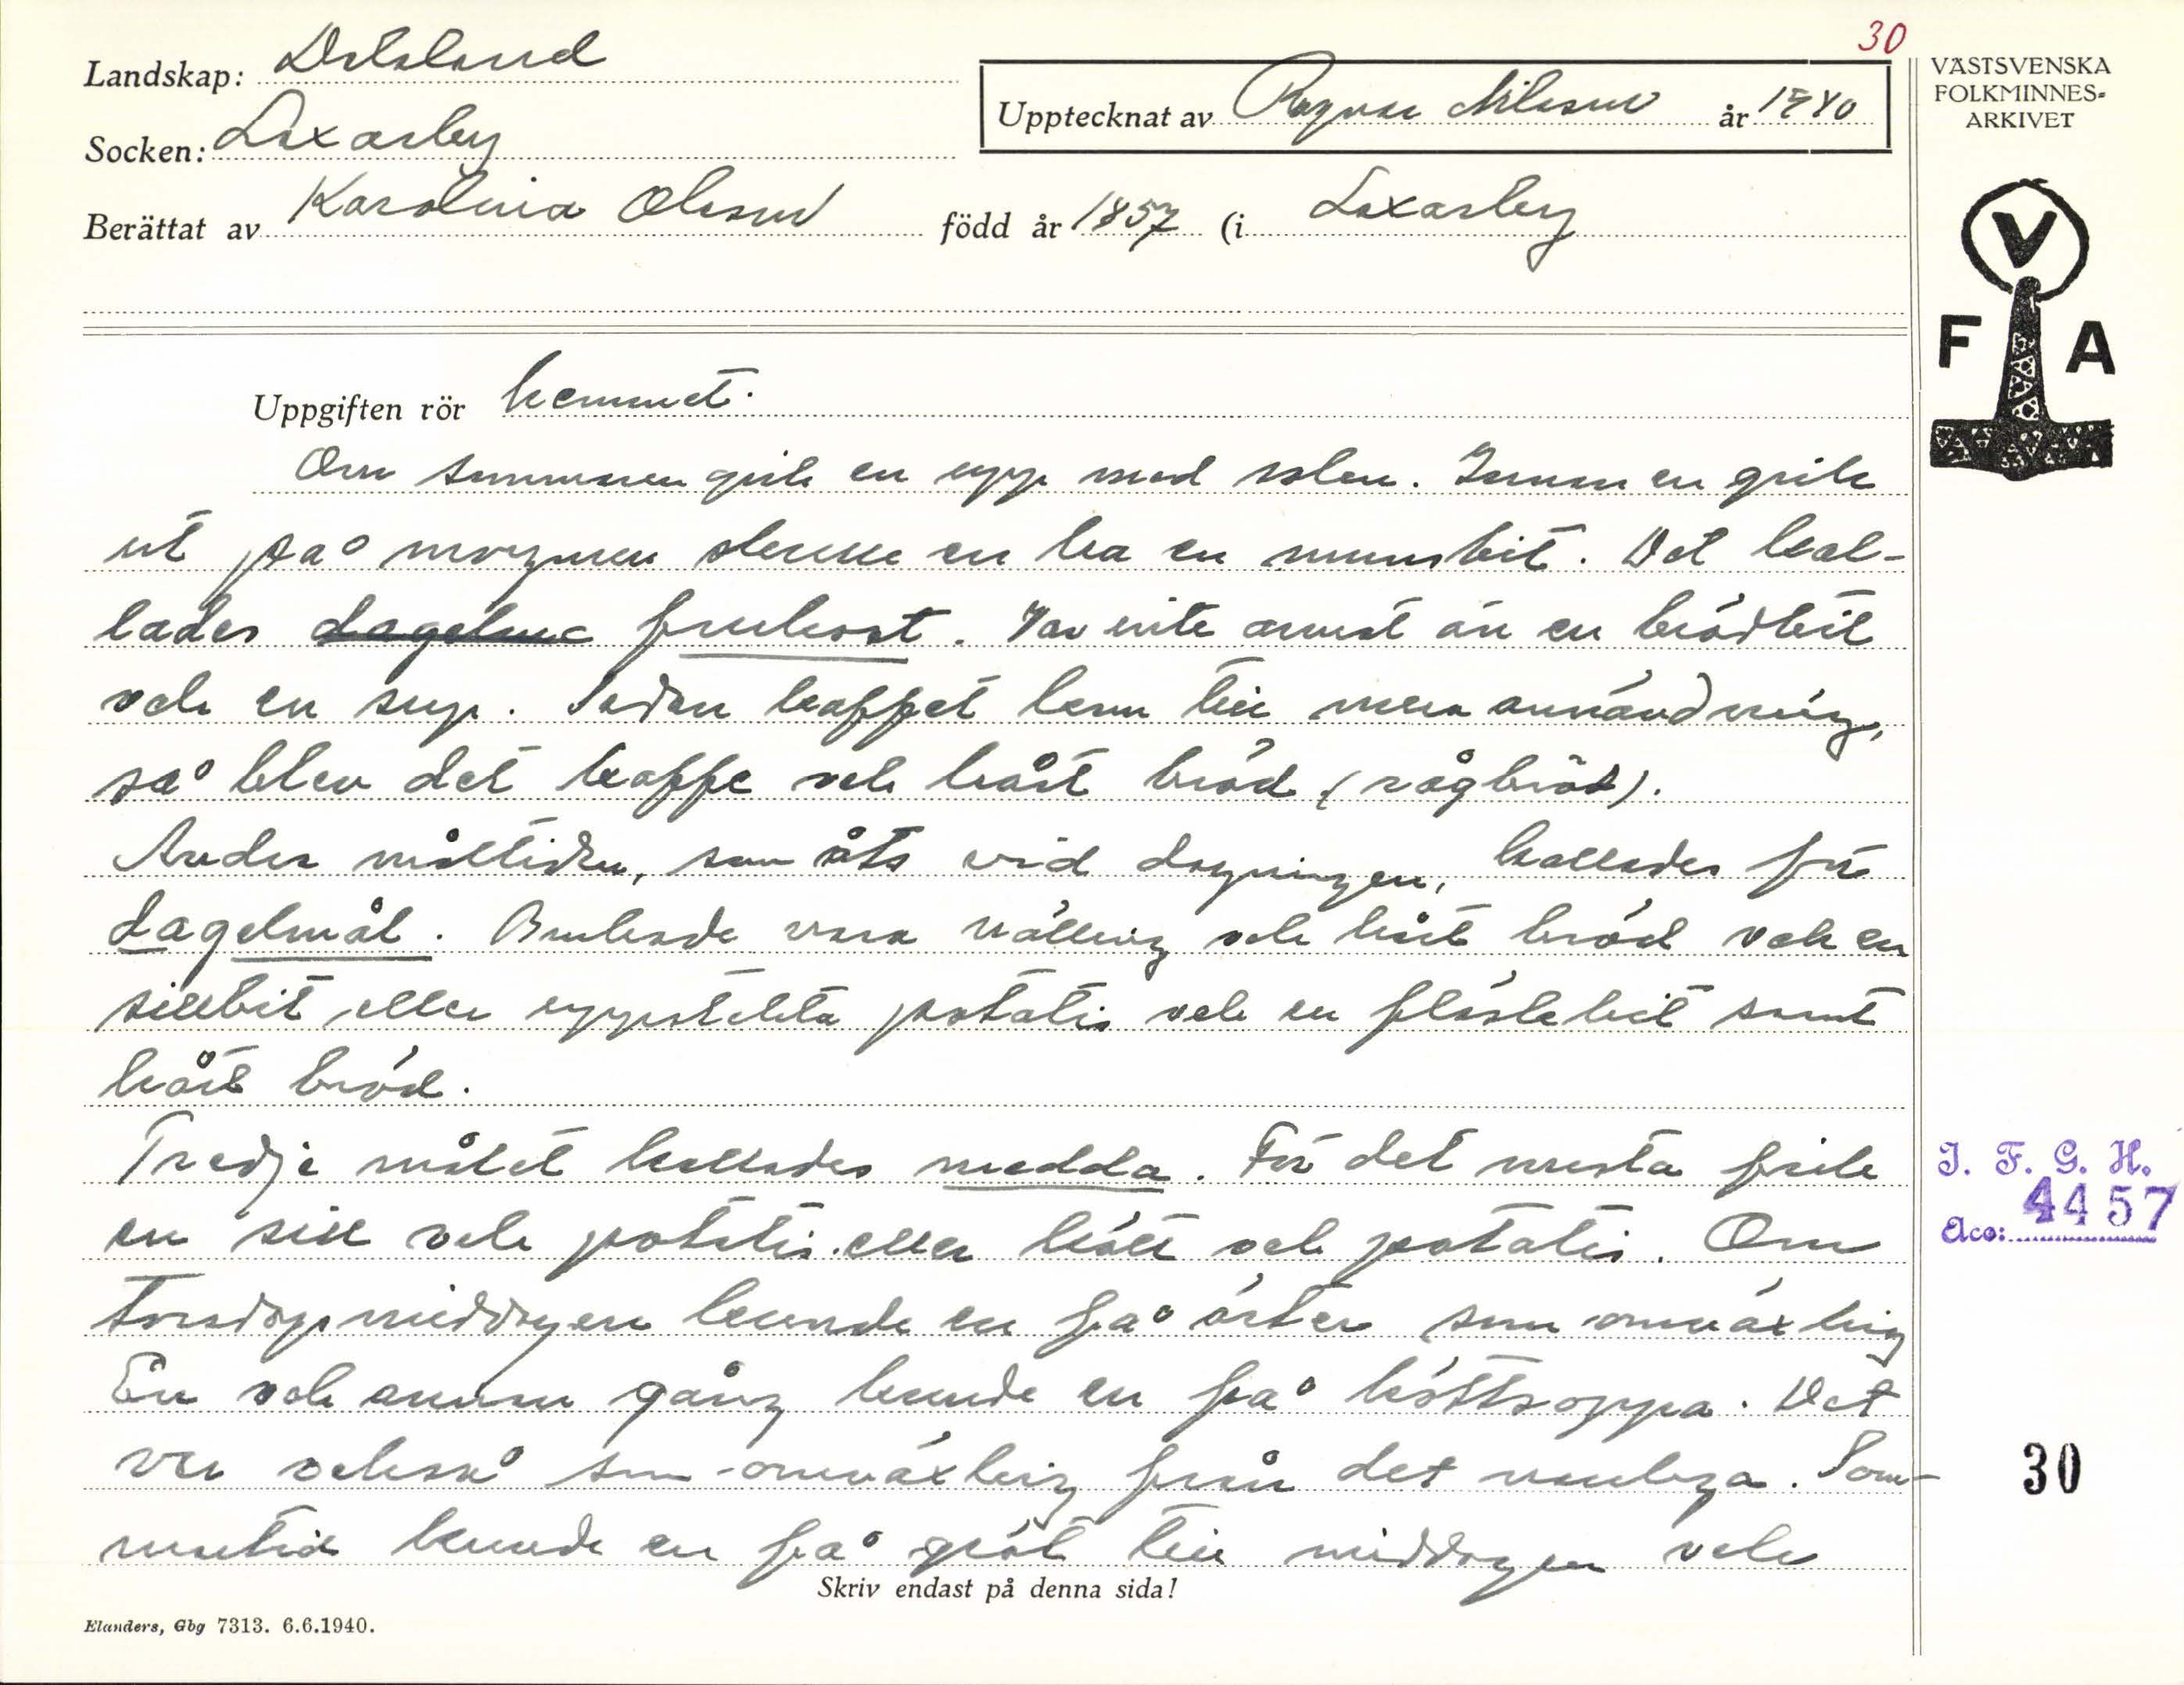 30
Landskap: Dalsland
Socken: Laxarby
Upptecknat av Ragnar Nilsson år 1940
Berättat av Karolina Olsson född år 1857 (i Laxarby
VÄSTSVENSKA
FOLKMINNES-
ARKIVET
V
F A
Uppgiften rör hemmet.
Om sommaren gick en upp med solen. Innan en gick
ut på morgonen skulle en ha en munsbit. Det kal-
lades frukost. Var inte annat än en brödbit
och en sup. Sedan kaffet kom till mera användning,
så blev det kaffe och hårt bröd (rågbröd).
Andra måltiden, som åts vid dagningen, kallades för
dagelmål. Brukade vara välling och hårt bröd och en
sillbit eller uppstekta potatis och en fläskbit samt
hårt bröd.
Tredje målet kallades medda. För det mesta fick
en sill och potatis eller kött och potatis. Om
torsdagsmiddagen kunde en få ärter som omväxling
En och annan gång kunde en få köttsoppa. Det
var också som omväxling från det vanliga. Som-
martid kunde en få gröt till middagen och
Skriv endast på denna sida!
Elanders, Gbg 7313. 6.6.1940.
I. F. G. H.
Acc: 4457
30